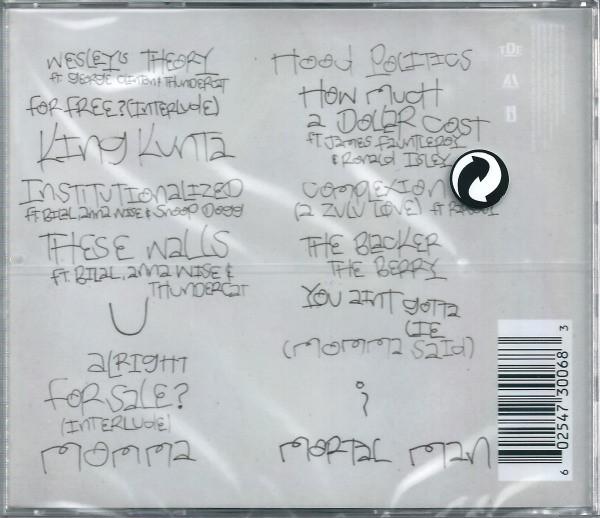 WESLEY'S THEORY
ft. GEORGE CLINTON & THUNDERCAT
FOR FREE? (INTERLUDE)
KING KUNTA
INSTITUTIONALIZED
ft. BILAL, ANNA WISE & SNOOP DOGG
THESE WALLS
ft. BILAL, ANNA WISE &
THUNDERCAT
U
ALRIGHT
FOR SALE?
(INTERLUDE)
MOMMA
HOOD POLITICS
HOW MUCH
A DOLLAR COST
ft. JAMES FAUNTLEROY
& RONALD ISLEY
COMPLEXION
(A ZULU LOVE) ft
THE BLACKER
THE BERRY
YOU AINT GOTTA
LIE
(MOMMA SAID)
i
MORTAL MAN
TDE
6 02547 30068 3